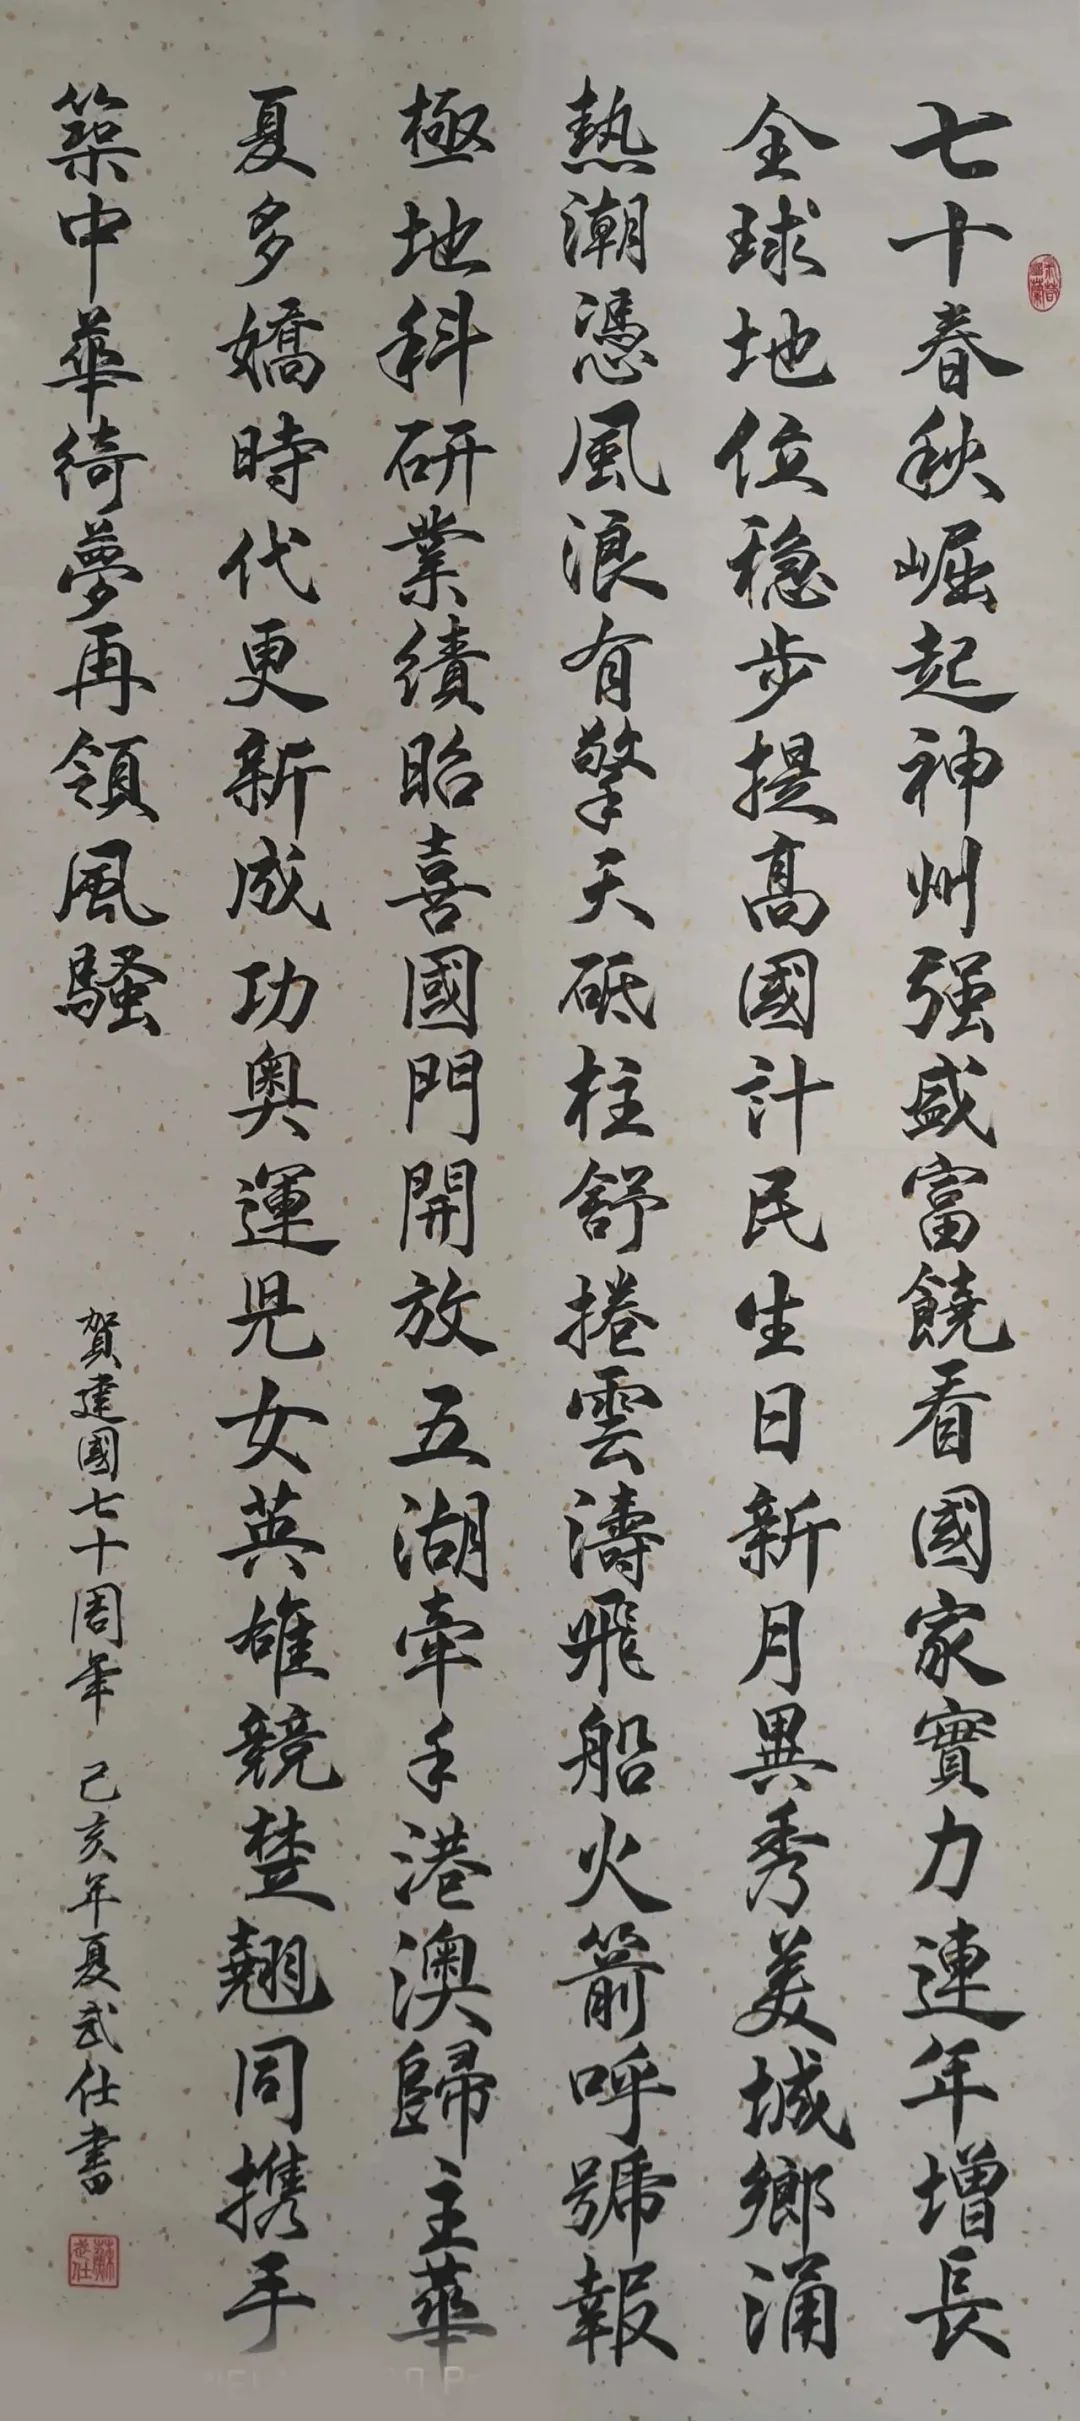 七十春秋崛起神州强盛富饒看國家實力連年增長
全球地位穏步提高國計民生日新月異秀美城鄉涌
熱潮憑風浪有擎天砥柱舒捲雲濤飛船火箭呼號報
極地科研業績昭喜國門開放五湖牽手港澳歸主華
夏多嬌時代更新成功奥運児女英雄競楚翹同携手
築中華綺夢再領風騷
賀建國七十周年 己亥年夏武仕書
蘇武仕